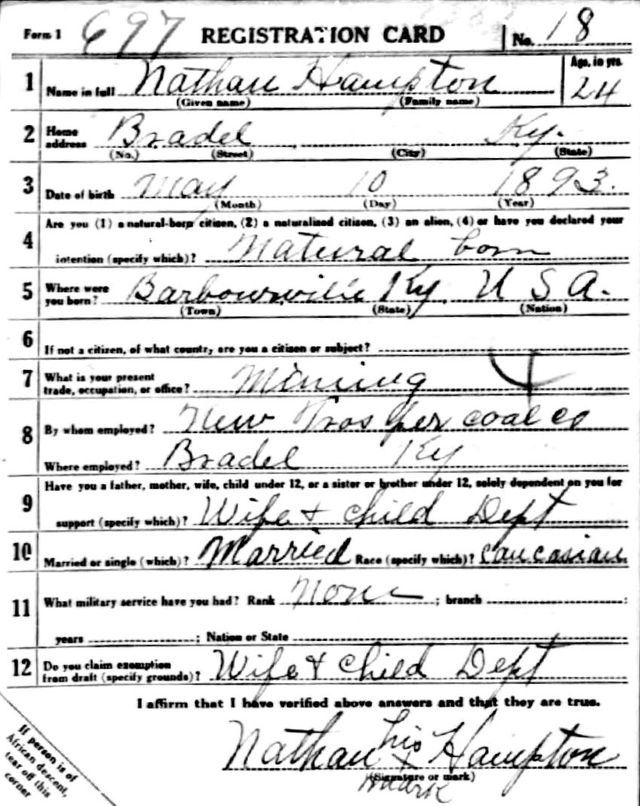 Form 1 697 REGISTRATION CARD No. 18
1 Name in full Nathan Hampton Age, in yrs. 24
(Given name) (Family name)
2 Home address Bradel Ky.
(No.) (Street) (City) (State)
3 Date of birth May 10 1893.
(Month) (Day) (Year)
4 Are you (1) a natural-born citizen, (2) a naturalized citizen, (3) an alien, (4) or have you declared your
intention (specify which)? Natural born
5 Where were you born? Barbourville Ky. U S A.
(Town) (State) (Nation)
6 If not a citizen, of what country are you a citizen or subject?
7 What is your present trade, occupation, or office? Mining
8 By whom employed? New Prosper coal co
Where employed? Bradel Ky
9 Have you a father, mother, wife, child under 12, or a sister or brother under 12, solely dependent on you for
support (specify which)? Wife + child Dept
10 Married or single (which)? Married Race (specify which)? Caucasian
11 What military service have you had? Rank None ; branch ;
years ; Nation or State
12 Do you claim exemption from draft (specify grounds)? Wife + child Dept
I affirm that I have verified above answers and that they are true.
Nathan his x Hampton
mark
(Signature or mark)
If person is of
African descent,
tear off this
corner